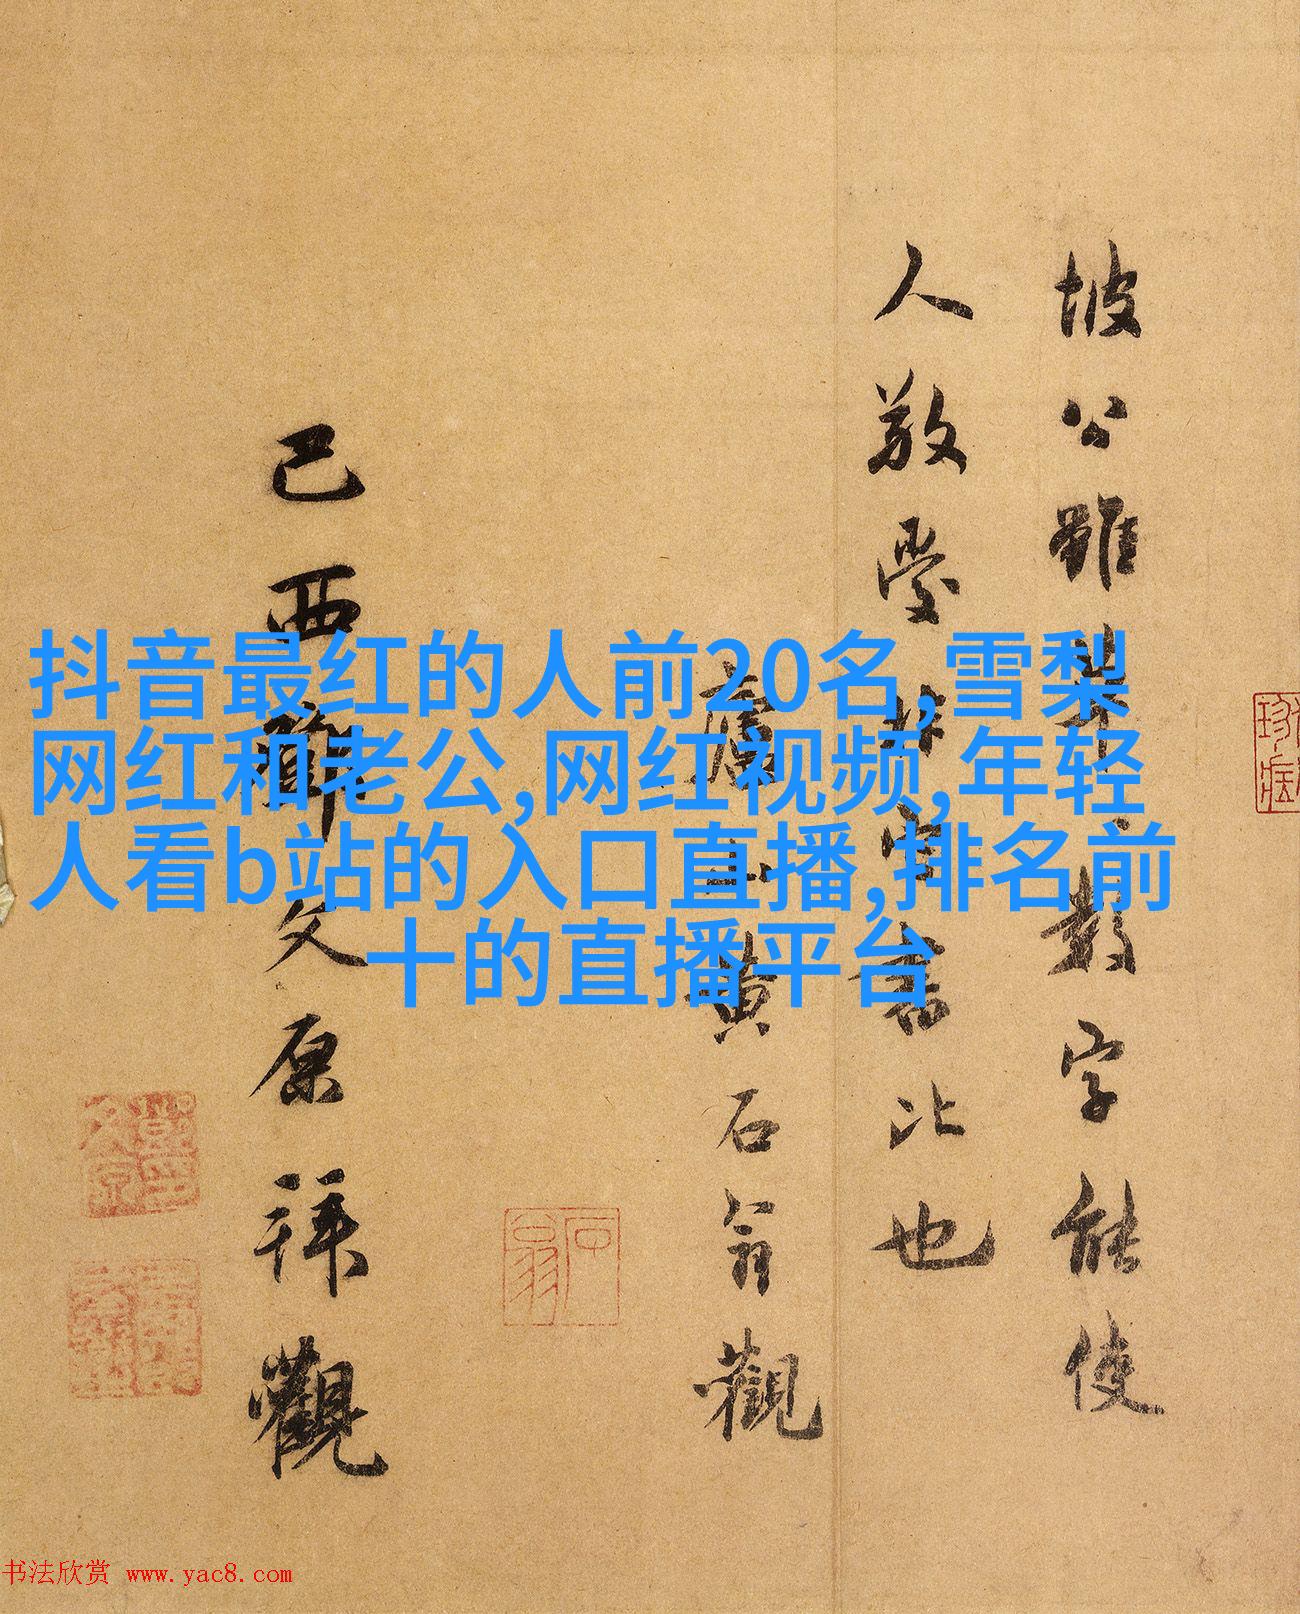 抖音最红的人前20名,雪梨
网红和老公,网红视频,年轻
人看b站的入口直播,排名前
十的直播平台
坡公雖數字能使
人敬愛書此也
廬山黃石翁觀
己酉鄧文原拜觀
石翁
书法欣赏 www.yac8.com